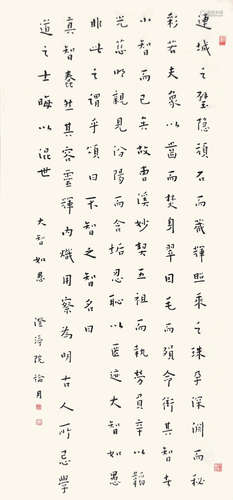 連城之璧隱頑石而藏輝照乘之珠孕深淵而秘
彩若夫象以齒而焚身翠因毛而殞命衒其智者
小智而已矣故曹溪妙契五祖而執勞負舂以韜
光慈明親見汾陽而含垢忍恥以匿迹大智如愚
非此之謂乎頌曰不智之智名曰
真智蠢然其容靈輝內熾用察為明古人所忌學
道之士晦以混世 大智如愚